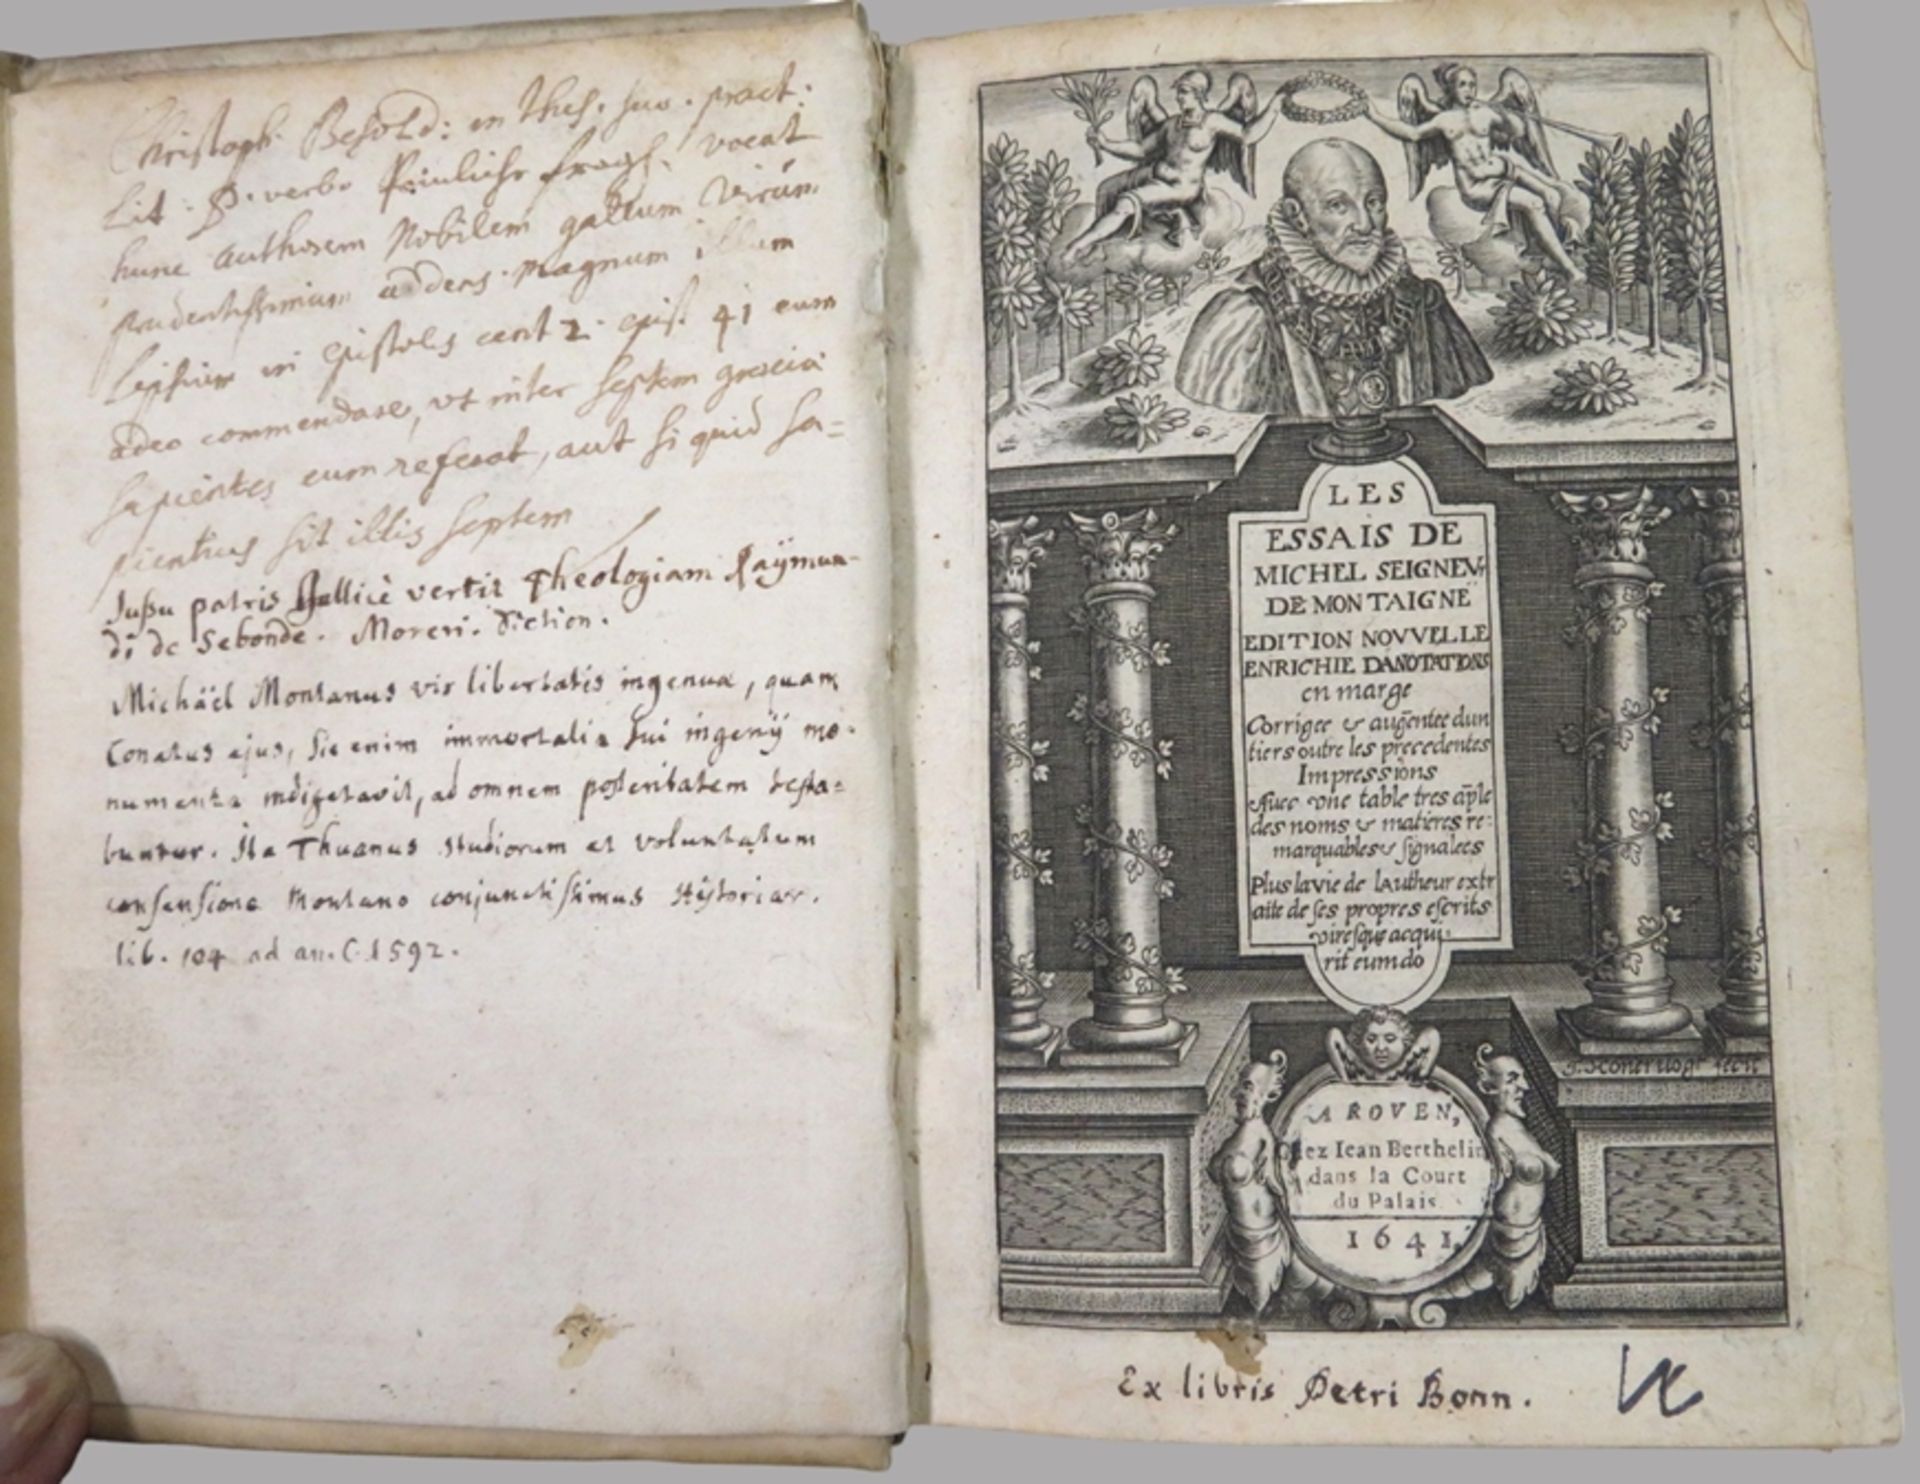 Christoph. Besold: in thes. suo. pract:
Lit. P. verbo Peinliche fragh. vocat
hunc authorem Nobilem gallum virum
prudentissimum addens. magnum illum
Lipsium in epistols cent 2. epist. 41 eum
adeo commendare, ut inter septem greciæ
sapientes eum referat, aut si quid sa=
pientius sit illis septem
Jussu patris Gallicè vertit Theologiam Raÿmun-
di de Sebonde. Moreri. Diction.
Michäel Montanus vir libertatis ingenuæ, quam
Conatus ejus, sic enim immortalia sui ingenÿ mo-
numenta indigetavit, ad omnem posteritatem testa=
buntur. Ita Thuanus studiorum et voluntatum
consensione Montano conjunctissimus Hÿstoriar.
lib. 104 ad an. C. 1592.
LES
ESSAIS DE
MICHEL SEIGNEVr
DE MONTAIGNE
EDITION NOVVELLE
ENRICHIE DANOTATIONS
en marge
Corrigee & augētee dun
tiers outre les precedentes
Impressiōns
Auec vne table tres āple
des noms & matieres re:
marquables & signalees
Plus la vie de lAutheur extr
aite de ses propres escrits
viresque acqui
rit eundo
fecit
A ROVEN,
Chez Iean Berthelin
dans la Court
du Palais.
1641.
Ex libris Petri Bonn.